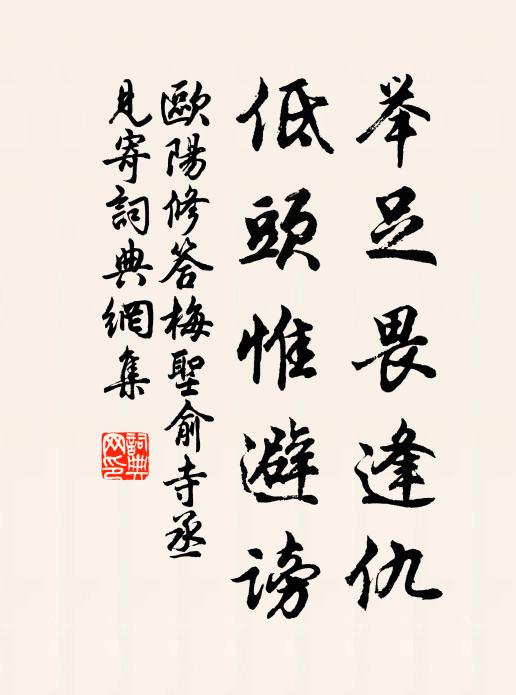 举足畏逢仇
低頭惟避谤
歐陽修答梅聖俞寺丞
見寄詞典網集
詞典
网印